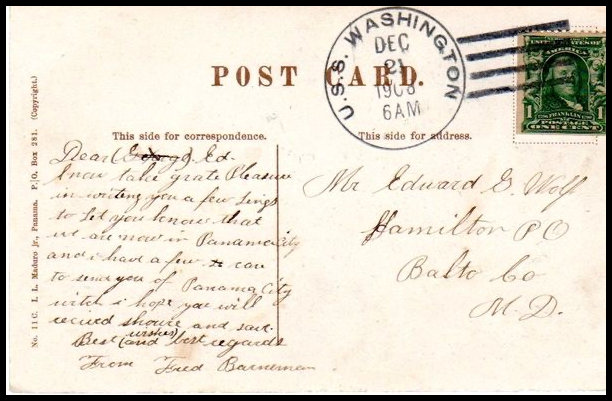 U.S.S. WASHINGTON
DEC
21
1908
6AM
POST CARD.
UNITED STATES OF
1 FRANKLIN 1
POSTAGE
ONE CENT
This side for correspondence.
This side for address.
No. 11 C. I. L. Maduro jr., Panama. P. O. Box 281. (Copyright.)
Dear (George). Ed-
I now take grate Pleasure
in writing you a few Lings
to Let you know that
we are now in Panama City
and i have a few can
to send you of Panama City
witch i hope you will
recived and save
Best (wishes) and best regards
From Fred Barneman
Mr Edward G. Wolf
Hamilton P O
Balto Co
M. D.